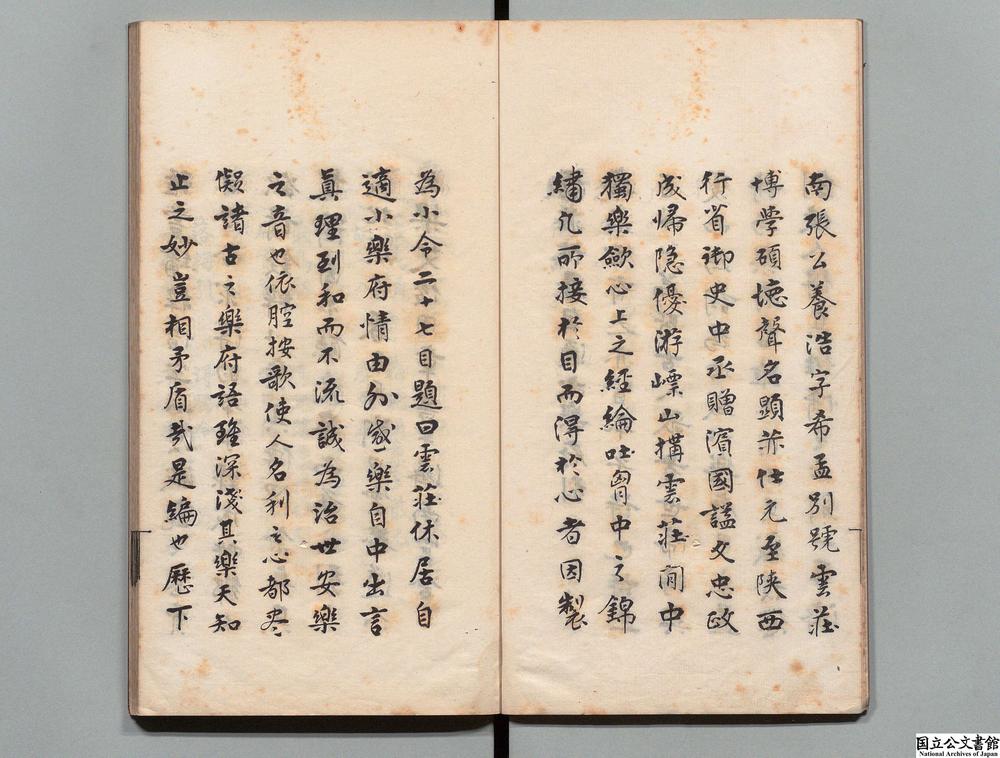 南張公養浩字希孟別號雲莊
博學碩德聲名顯於仕元至陝西
行省御史中丞贈濱國謚文忠政
成歸隱優游嶂山搆雲莊閒中
獨樂歛心上之經綸吐胷中之錦
繡凡所接於目而淂於心者因製
為小令二十七目題曰雲莊休居自
適小樂府情由外感樂自中出言
真理到和而不流誠為治世安樂
之音也依腔按歌使人名利之心都尽
儗諸古之樂府語雖深淺其樂天知
止之妙豈相矛盾哉是編也歷下
国立公文書館
National Archives of Japan